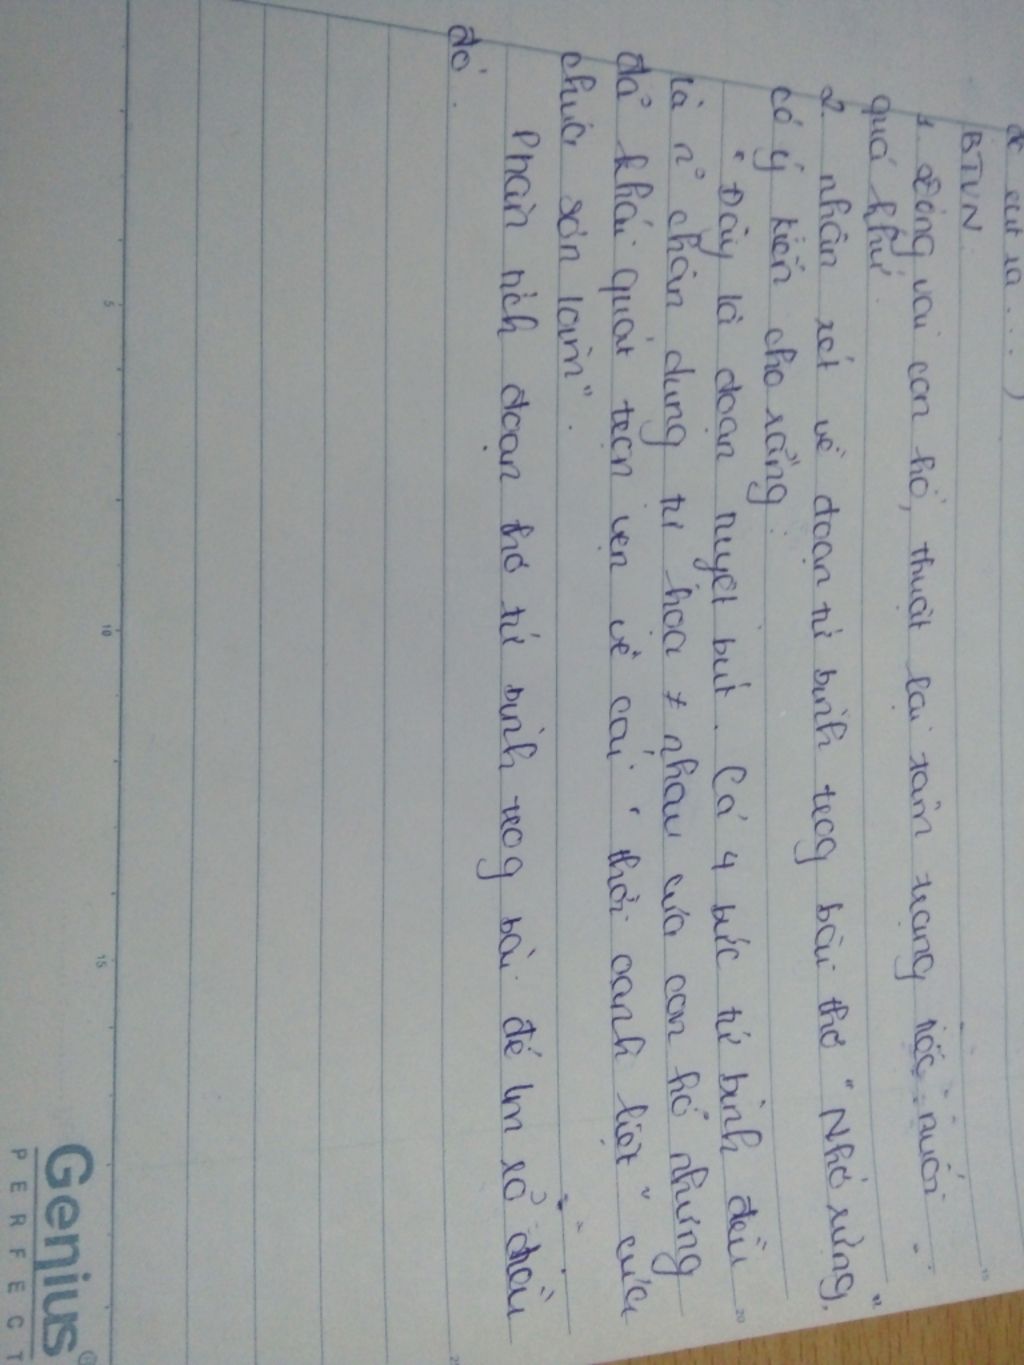 BTVN.
1. Đóng vai con hổ, thuật lại tâm trạng tiếc nuối
quá khứ.
2. nhận xét về đoạn tứ bình trog bài thơ "Nhớ rừng,"
có ý kiến cho rằng:
"Đây là đoạn tuyệt bút. Cả 4 bức tứ bình đều
là n° chân dung tự hoạ ≠ nhau của con hổ nhưng
đã khái quát trọn vẹn về cái "thời oanh liệt" của
chúa sơn lâm".
Phân tích đoạn thơ tứ bình trog bài để lm rõ điều
đó.
5
10
15
20
Genius®
PERFECT